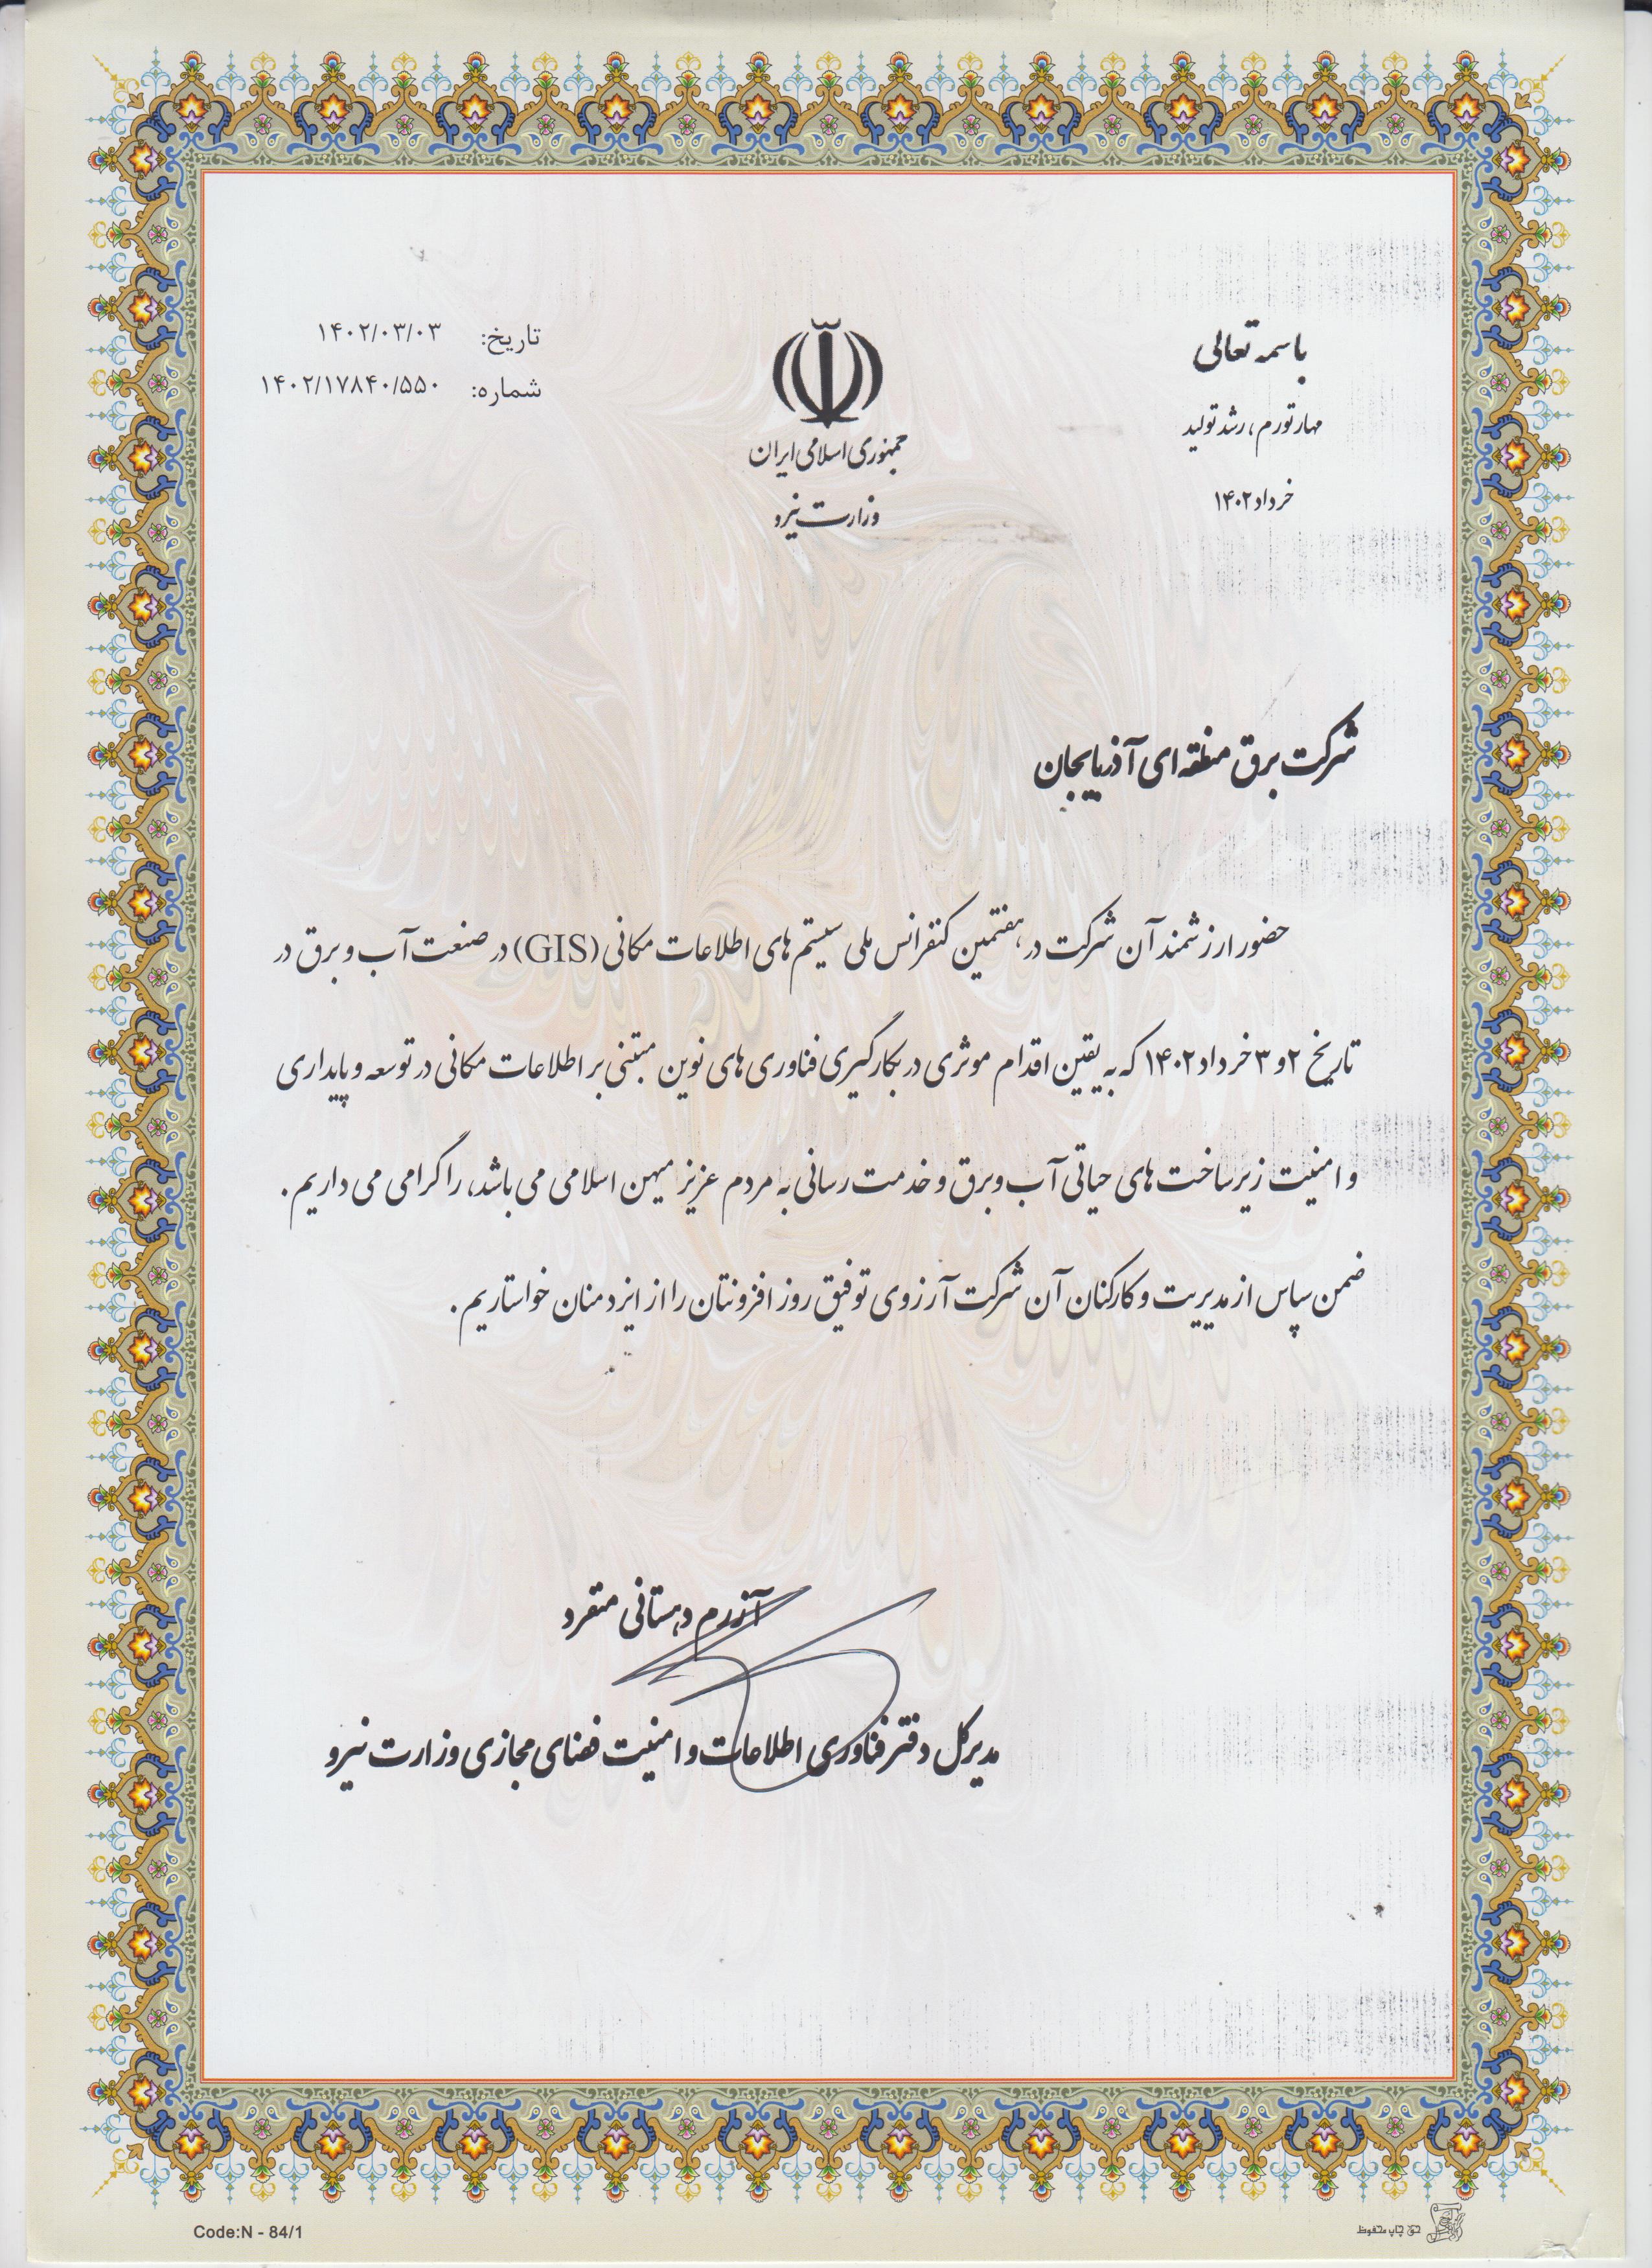 باسمه تعالی
مهار تورم، رشد تولید
خرداد ۱۴۰۲
جمهوری اسلامی ایران
وزارت نیرو
تاریخ: ۱۴۰۲/۰۳/۰۳
شماره: ۱۴۰۲/۱۷۸۴۰/۵۵۰
شرکت برق منطقه ای آذربایجان
حضور ارزشمند آن شرکت در هفتمین کنفرانس ملی سیستم های اطلاعات مکانی (GIS) در صنعت آب و برق در
تاریخ ۲ و ۳ خرداد ۱۴۰۲ که به یقین اقدام موثری در بکارگیری فناوری های نوین مبتنی بر اطلاعات مکانی در توسعه و پایداری
و امنیت زیرساخت های حیاتی آب و برق و خدمت رسانی به مردم عزیز میهن اسلامی می باشد، را گرامی می داریم.
ضمن سپاس از مدیریت و کارکنان آن شرکت آرزوی توفیق روز افزونتان را از ایزد منان خواستاریم.
آزرم دهستانی منفرد
مدیرکل دفتر فناوری اطلاعات و امنیت فضای مجازی وزارت نیرو
Code:N - 84/1
حق چاپ محفوظ